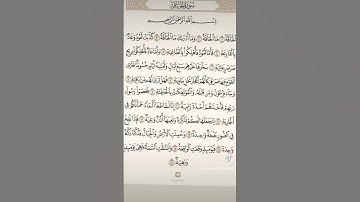 سُورَةُ الحَاقَّةِ
بِسْمِ اللَّهِ الرَّحْمَٰنِ الرَّحِيمِ
الْحَاقَّةُ ۝ مَا الْحَاقَّةُ ۝ وَمَا أَدْرَاكَ مَا الْحَاقَّةُ ۝ كَذَّبَتْ ثَمُودُ وَعَادٌ
بِالْقَارِعَةِ ۝ فَأَمَّا ثَمُودُ فَأُهْلِكُوا بِالطَّاغِيَةِ ۝ وَأَمَّا عَادٌ فَأُهْلِكُوا بِرِيحٍ
صَرْصَرٍ عَاتِيَةٍ ۝ سَخَّرَهَا عَلَيْهِمْ سَبْعَ لَيَالٍ وَثَمَانِيَةَ أَيَّامٍ حُسُومًا فَتَرَى
الْقَوْمَ فِيهَا صَرْعَىٰ كَأَنَّهُمْ أَعْجَازُ نَخْلٍ خَاوِيَةٍ ۝ فَهَلْ تَرَىٰ لَهُم مِّن بَاقِيَةٍ ۝
وَجَاءَ فِرْعَوْنُ وَمَن قَبْلَهُ وَالْمُؤْتَفِكَاتُ بِالْخَاطِئَةِ ۝ فَعَصَوْا رَسُولَ
رَبِّهِمْ فَأَخَذَهُمْ أَخْذَةً رَّابِيَةً ۝ إِنَّا لَمَّا طَغَا الْمَاءُ حَمَلْنَاكُمْ فِي
الْجَارِيَةِ ۝ لِنَجْعَلَهَا لَكُمْ تَذْكِرَةً وَتَعِيَهَا أُذُنٌ وَاعِيَةٌ ۝ فَإِذَا نُفِخَ
فِي الصُّورِ نَفْخَةٌ وَاحِدَةٌ ۝ وَحُمِلَتِ الْأَرْضُ وَالْجِبَالُ فَدُكَّتَا دَكَّةً
وَاحِدَةً ۝ فَيَوْمَئِذٍ وَقَعَتِ الْوَاقِعَةُ ۝ وَانشَقَّتِ السَّمَاءُ فَهِيَ يَوْمَئِذٍ
وَاهِيَةٌ ۝